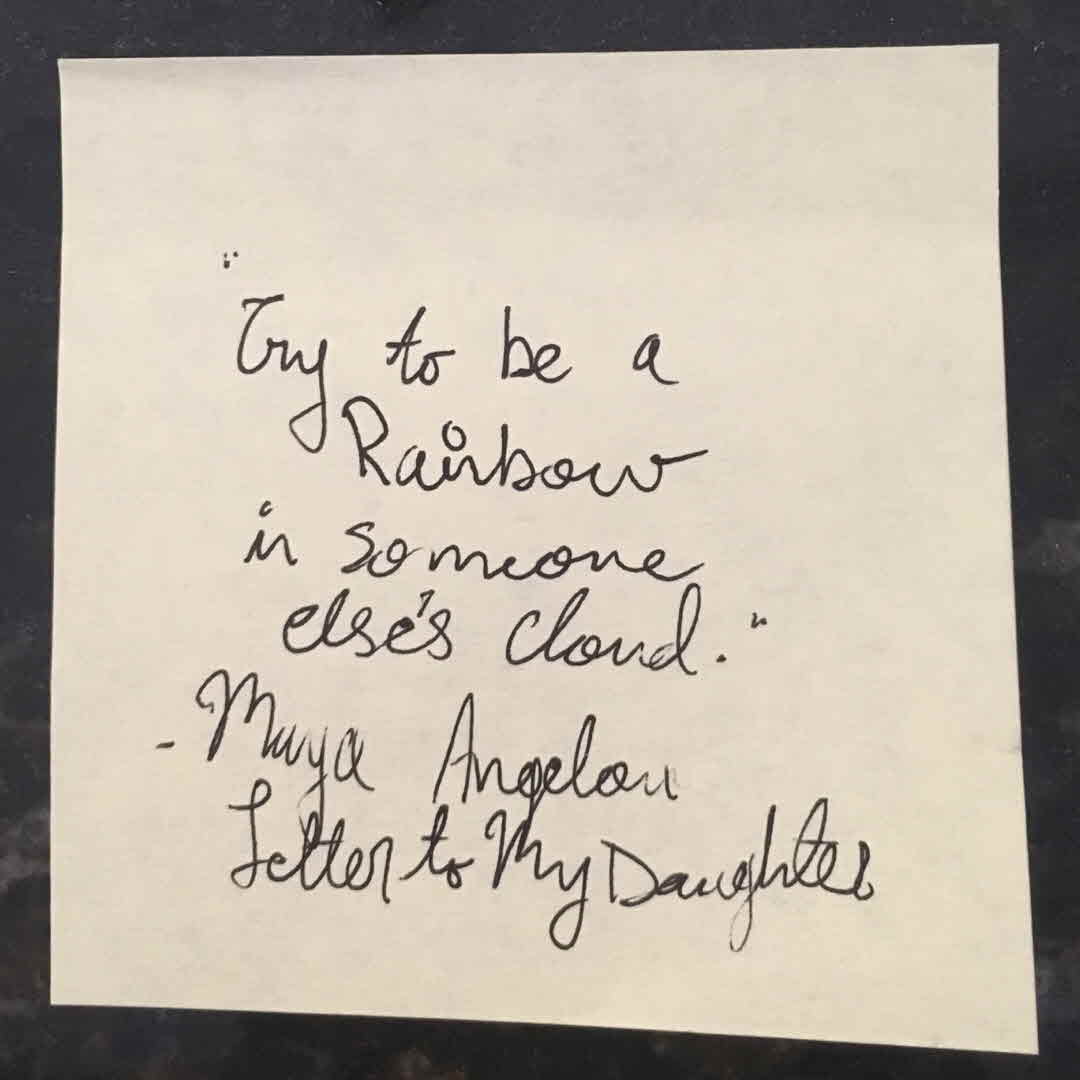 "Try to be a
Rainbow
in someone
else's cloud."
- Maya Angelou
Letter to My Daughter